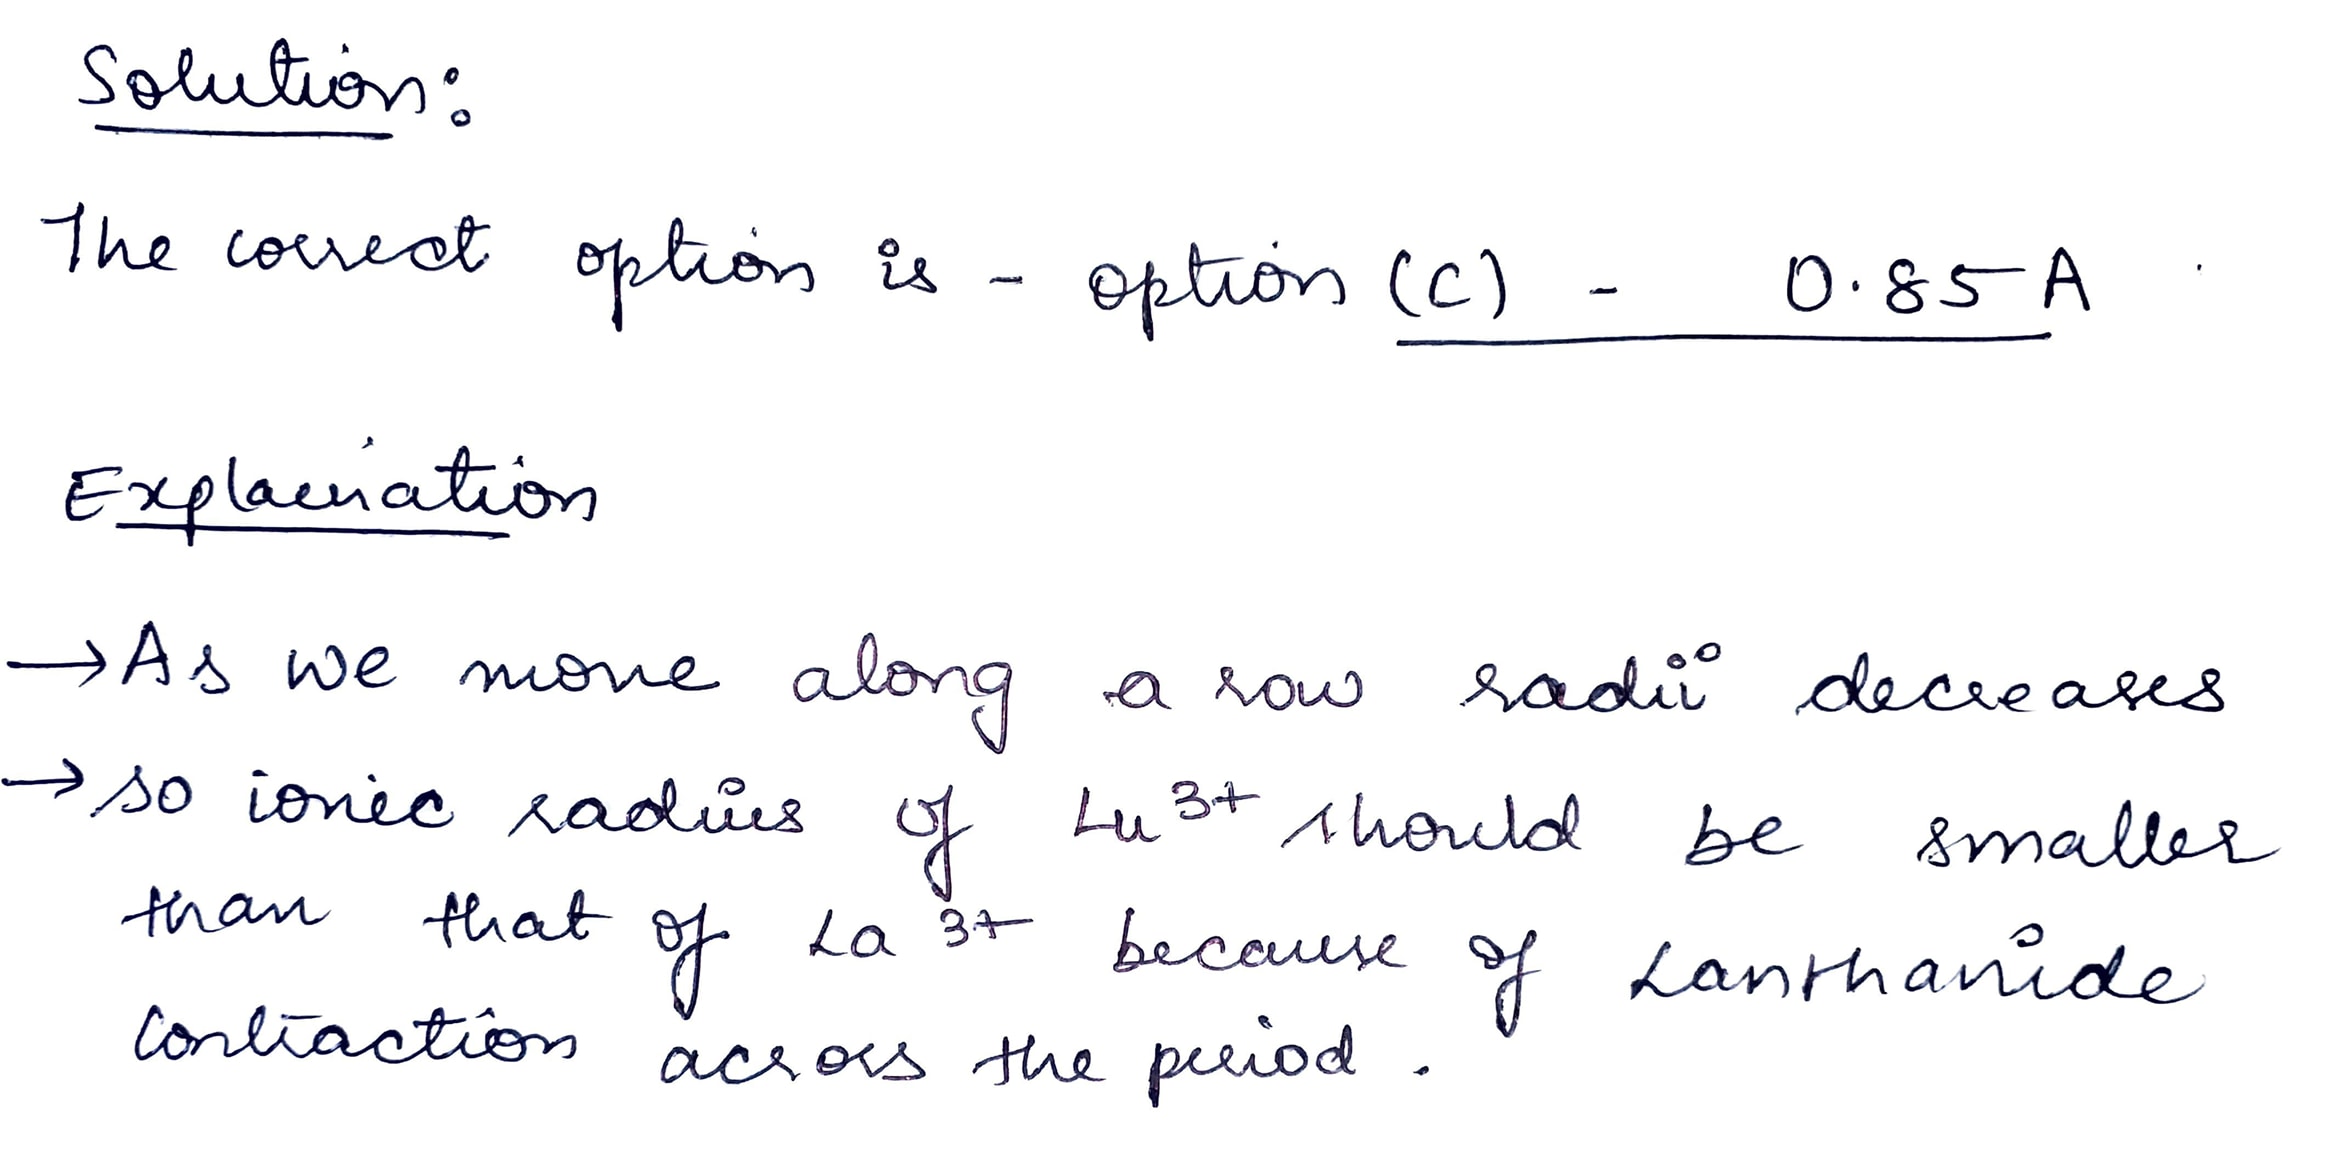 Solution:
The correct option is - option (C) - 0.85 A
Explaination
→ As we move along a row radii decreases
→ so ionic radius of Lu³⁺ should be smaller
than that of La³⁺ because of Lanthanide
contraction across the period.